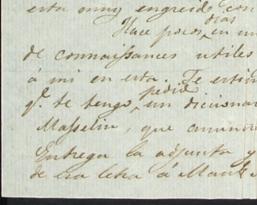 esta muy engreido con
Hace pocos dias en un
de connaissances utiles
á mi en esta. Te estim
qe. te tengo pedido un diccionar
Masselin, que anunci
Entrega la adjunta y
de esa letra á Man